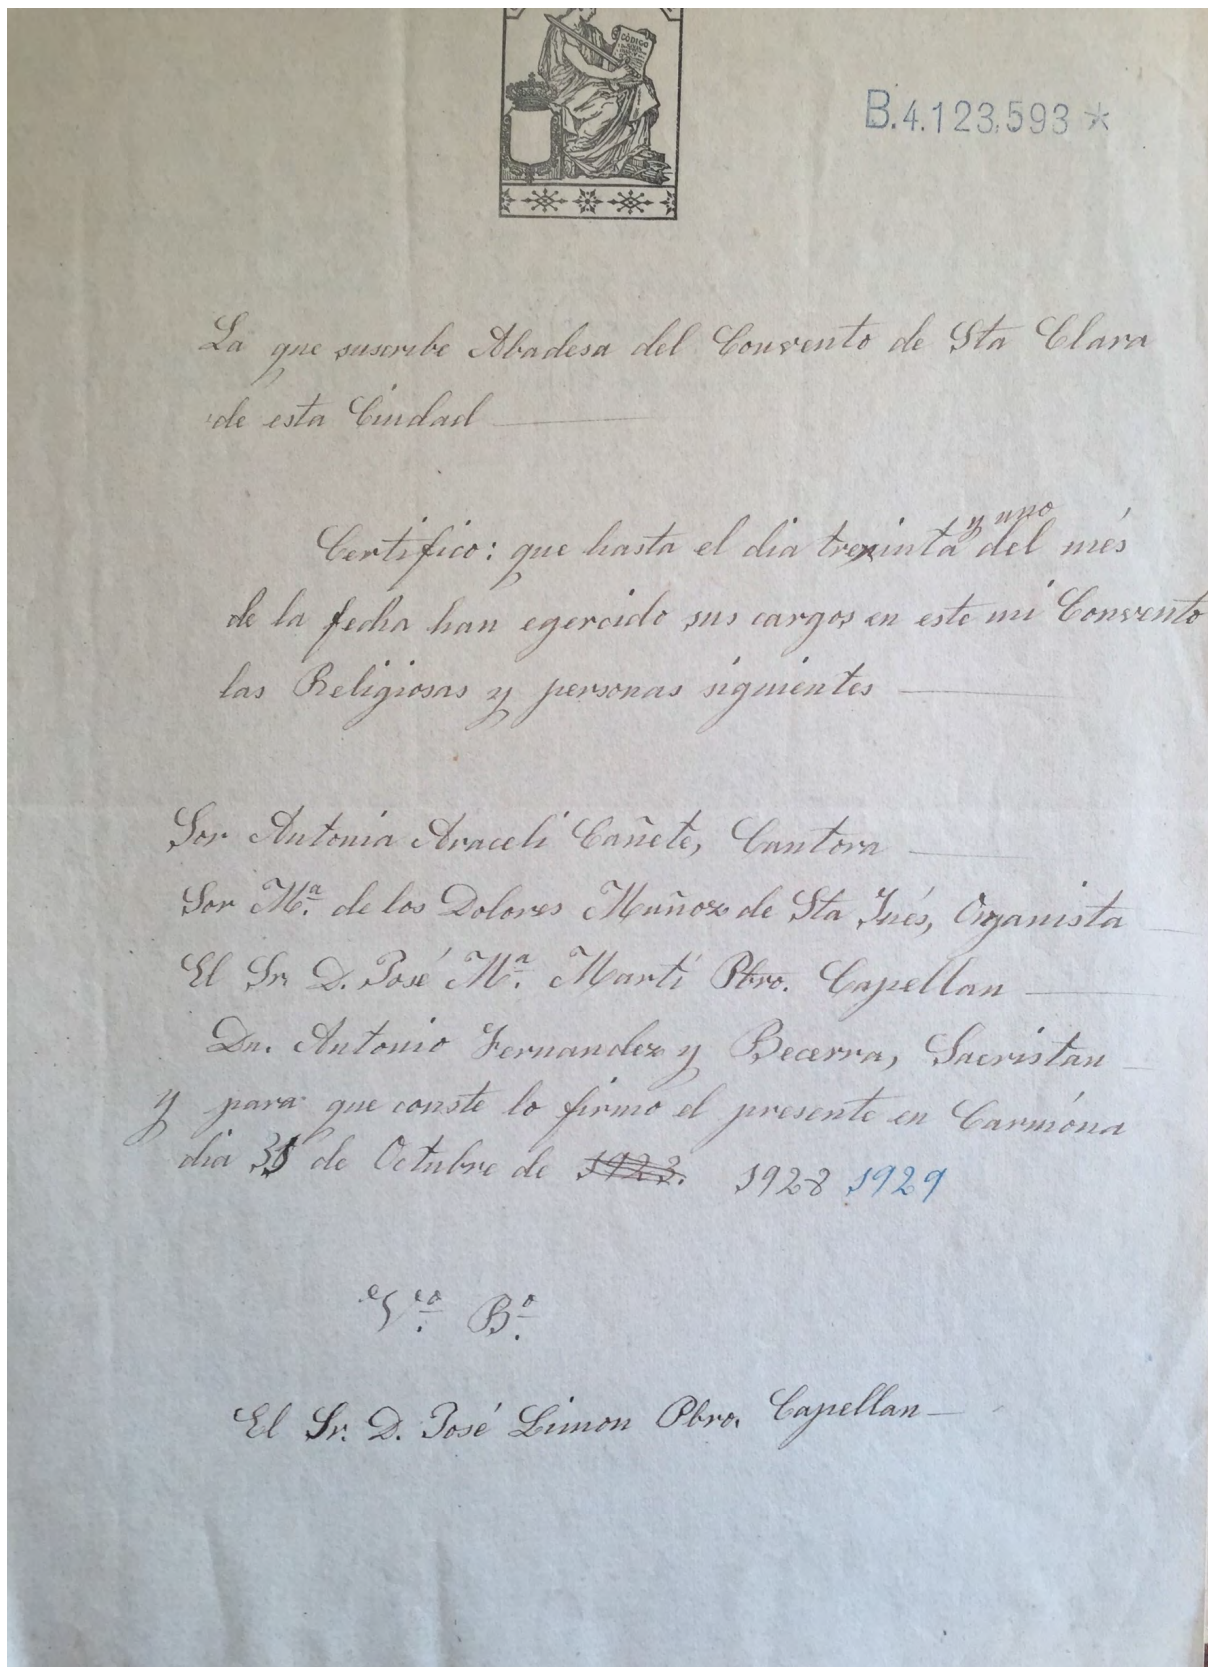 CÓDIGO
B.4.123.593 *
La que suscribe Abadesa del Convento de Sta Clara
de esta Ciudad
y uno
Certifico: que hasta el dia treinta del més
de la fecha han egercido sus cargos en este mi Convento
las Religiosas y personas siguientes
Sor Antonia Araceli Cañete, Cantora
Sor Mª. de los Dolores Muñoz de Sta Inés, Organista
El Sr. D. José Mª. Martí Pbro. Capellan
Dn. Antonio Fernandez y Becerra, Sacristan
y para que conste lo firmo el presente en Carmóna
dia 31 de Octubre de 1923. 1928 1929
Vto. Bº.
El Sr. D. José Limon Pbro. Capellan